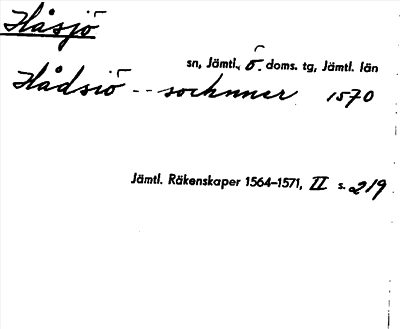 Håsjö
sn, Jämtl., ö. doms. tg, Jämtl. län
Hådsiö -- sochnner 1570
Jämtl. Räkenskaper 1564–1571, II s. 219